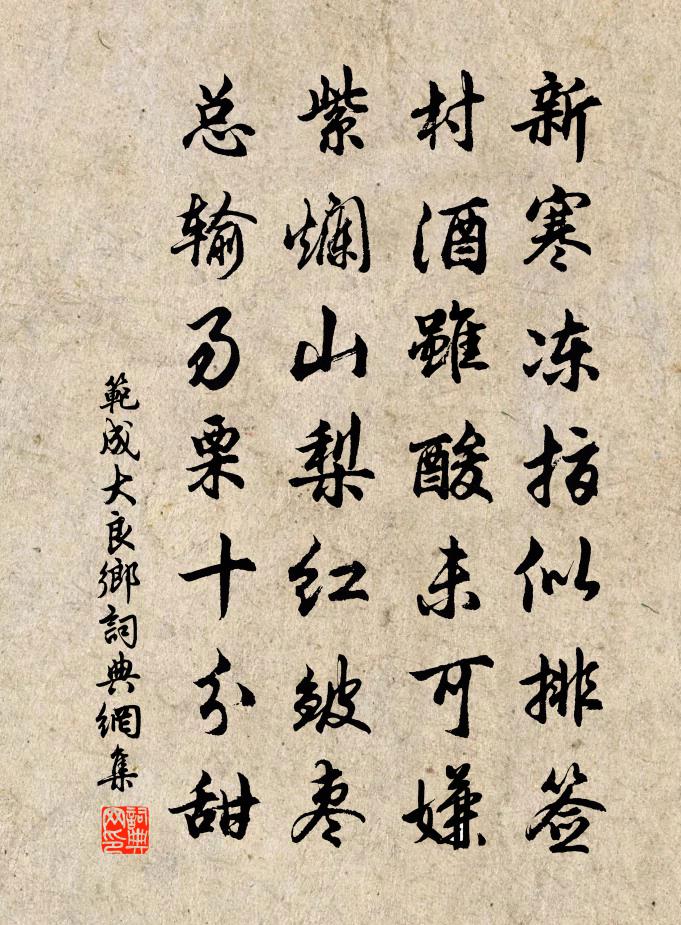 新寒冻指似排签
村酒雖酸未可嫌
紫爛山梨红皱枣
总输易栗十分甜
範成大良鄉詞典網集
詞典
网印